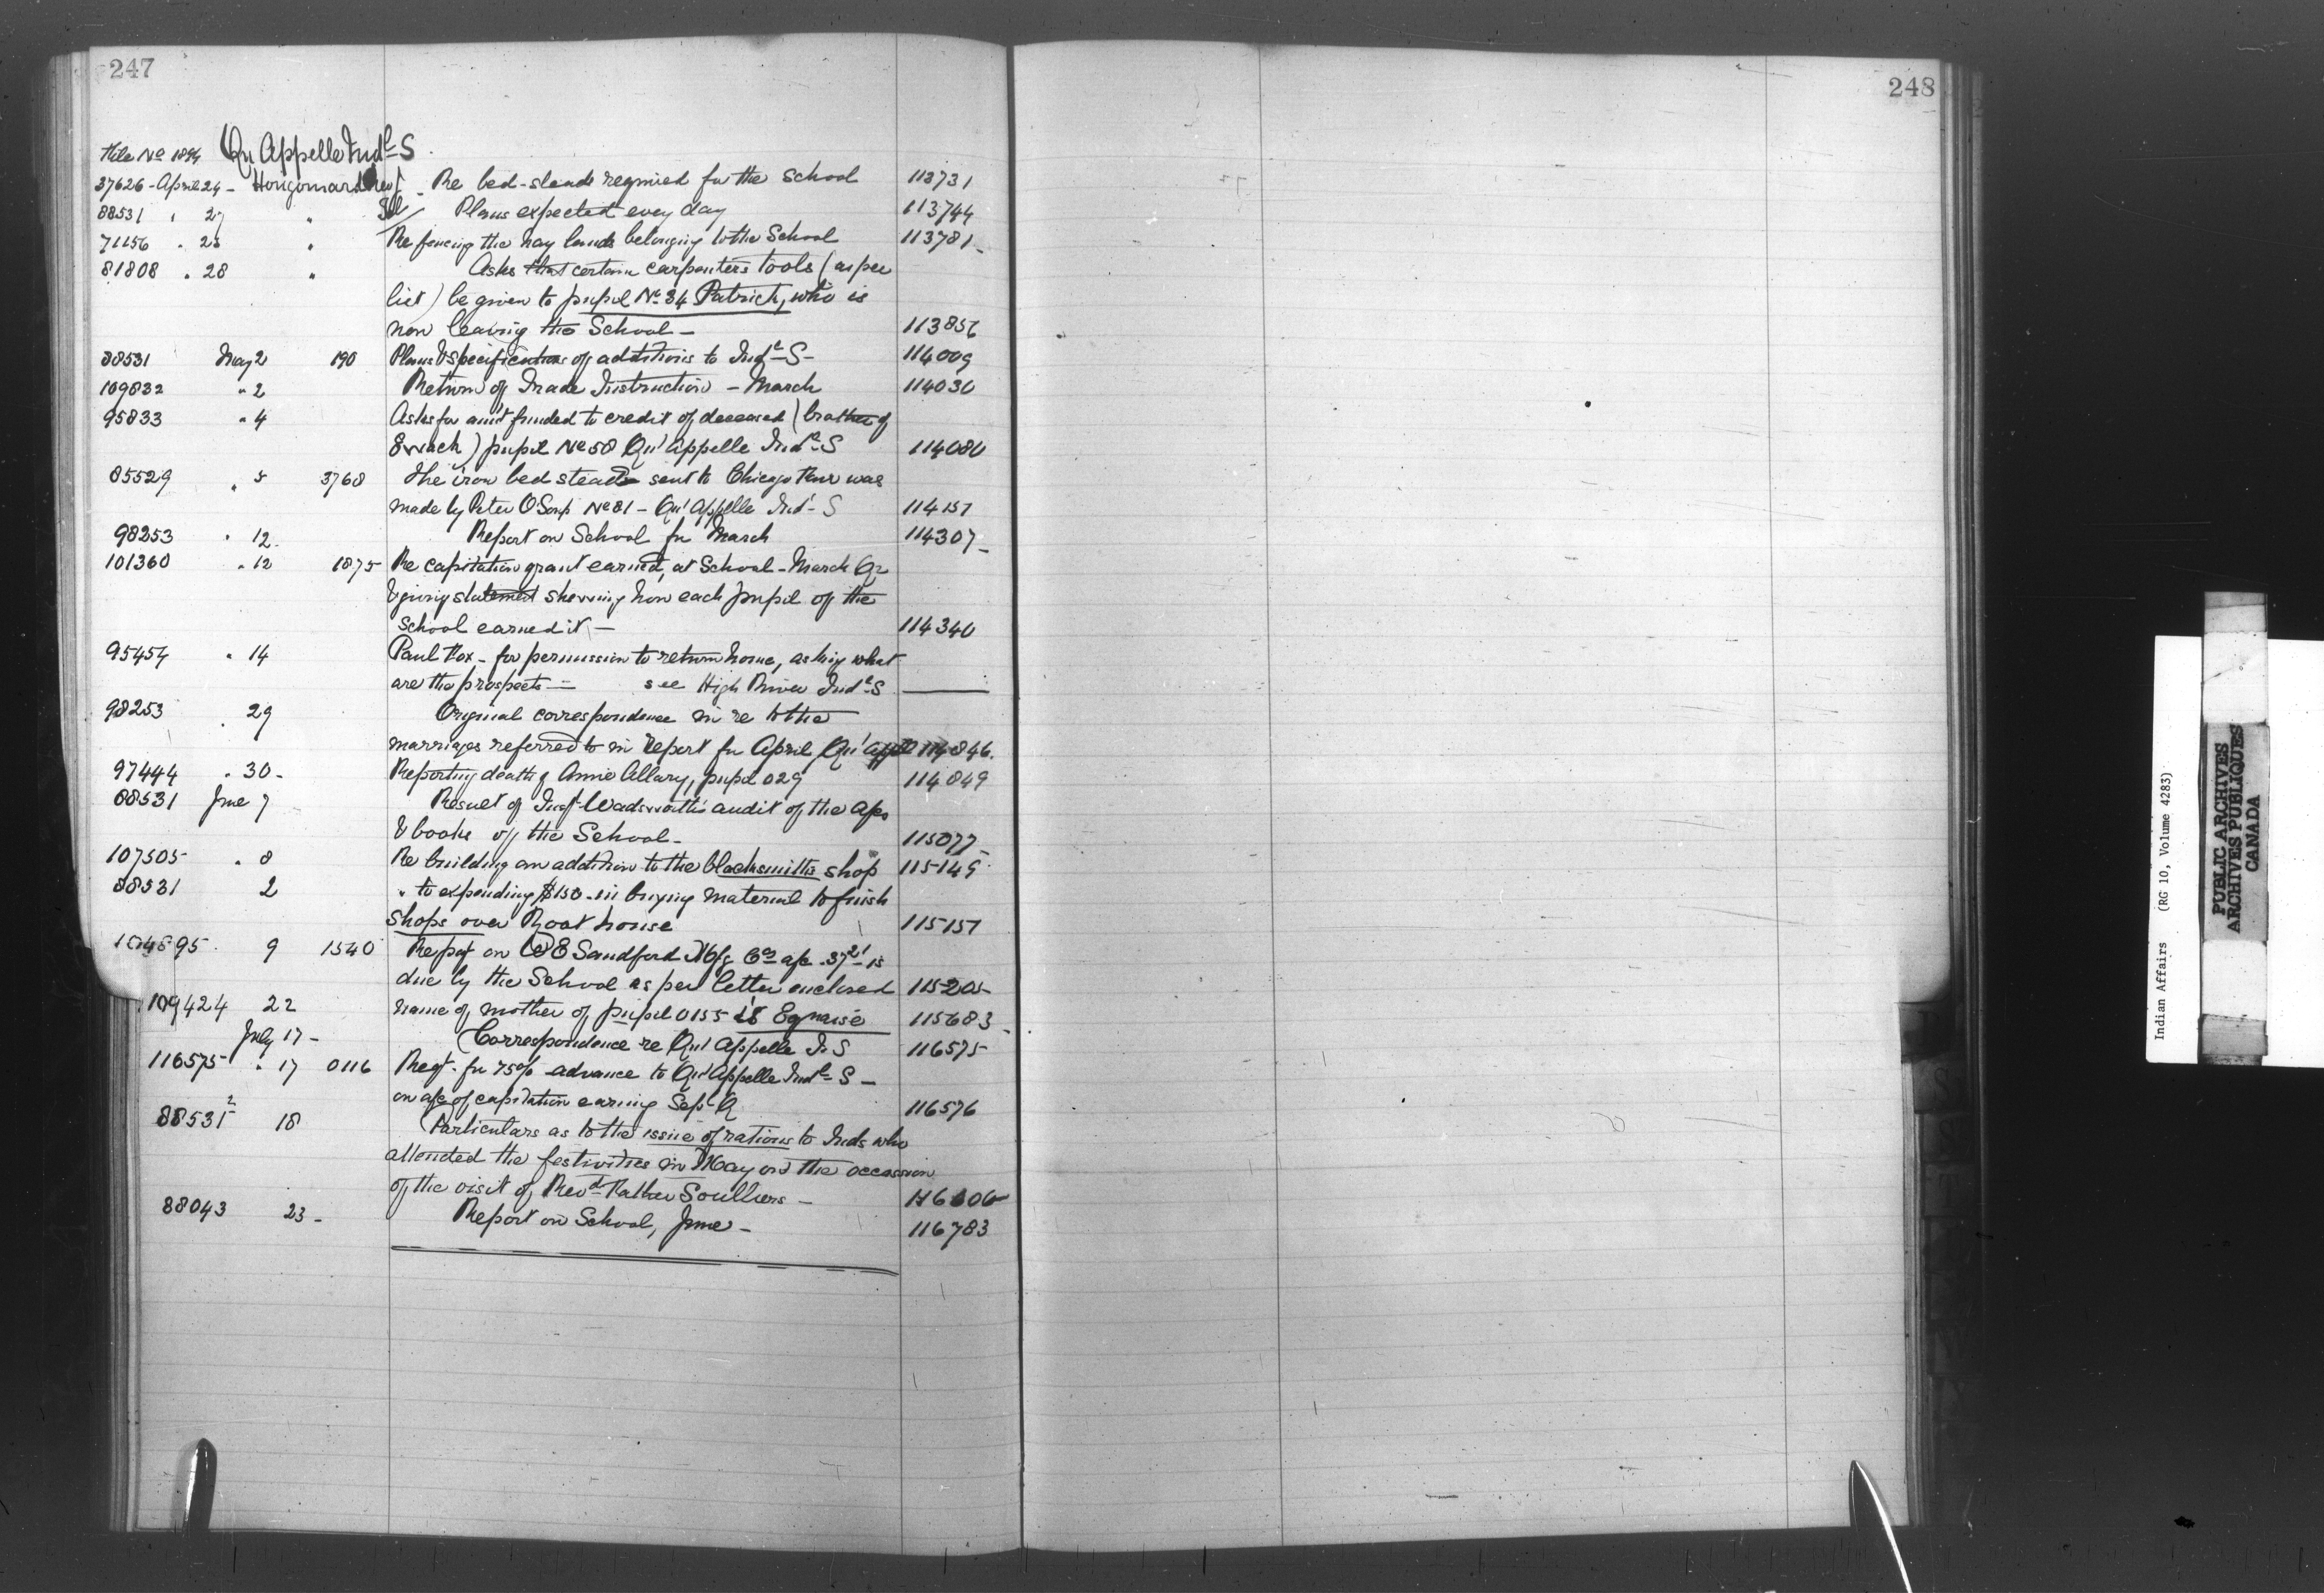 247
248
File No 1894 Qu'Appelle Indl S
37626 - April 24 - Hougonard Rev J - Re bed-steads required for the School 113731
88531 " 27 " Plans expected every day 113744
71156 " 25 " Re fencing the hay lands belonging to the School 113781
81808 " 28 " Asks that certain carpenters tools (as per
list) be given to pupil No 34 Patrick, who is
now leaving the School - 113856
88531 May 2 190 Plans & specifications of additions to Indl S - 114009
109832 " 2 Return of Trade Instruction - March 114030
95833 " 4 Asks for amt funded to credit of deceased (brother of
) pupil No 58 Qu'Appelle Indl S 114080
85529 " 5 3768 The iron bed stead sent to Chicago Fair was
made by Peter No 81 - Qu'Appelle Indl S 114157
98253 " 12 Report on School for March 114307
101360 " 12 1875 Re capitation grant earned, at School - March Qr
& giving statement shewing how each pupil of the
School earned it - 114340
95454 " 14 Paul Fox - for permission to return home, asking what
are the prospects - see High River Indl S
98253 " 29 Original correspondence in re to the
marriages referred to in report for April Qu'App 114846
97444 " 30 - Reporting death of Annie Allary, pupil 029 114849
88531 June 7 Result of Inspr Wadsworth's audit of the a/cs
& books of the School - 115077
107505 " 8 Re building an addition to the blacksmiths shop 115149
88531 2 " to expending $150 - in buying material to finish
shops over Root house 115157
104895 9 1540 Report on W E Sandford Mfg Co a/c 37 21 is
due by the School as per letter enclosed 115205
109424 22 name of mother of pupil 0155 is 115683
July 17 - Correspondence re Qu'Appelle I. S 116575
116575 " 17 0116 Reqt. for 75% advance to Qu'Appelle Indl S -
on a/c of capitation earning Sept Q 116576
88531 2 18 Particulars as to the issue of rations to Inds who
attended the festivities in May on the occasion
of the visit of Revd Father Soulliers -
88043 23 - Report on School, June - 116783
Indian Affairs (RG 10, Volume 4283)
PUBLIC ARCHIVES
ARCHIVES PUBLIQUES
CANADA